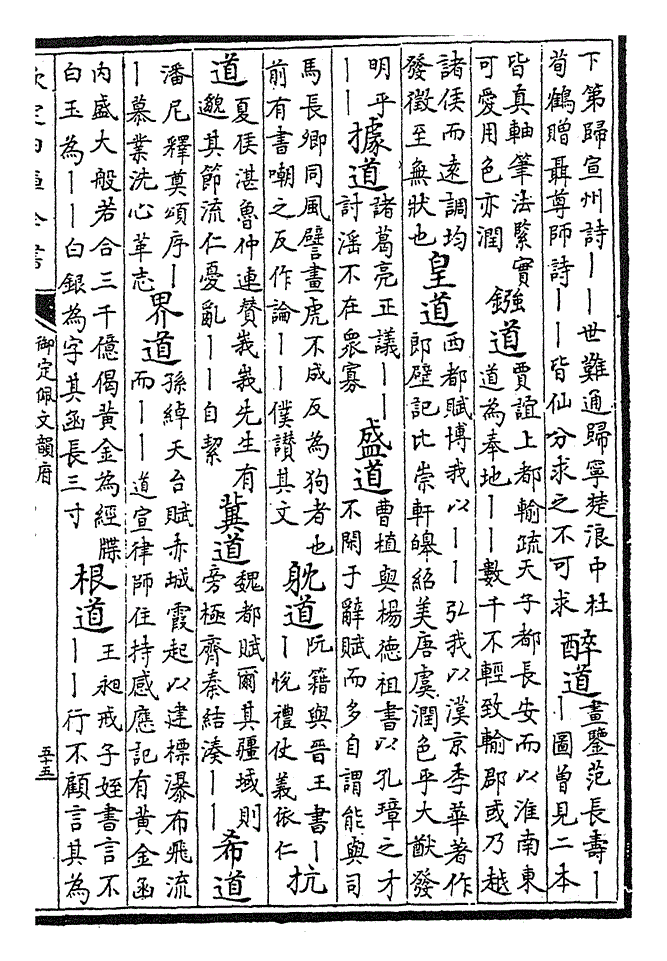 下第歸宣州詩——世難通歸寧楚浪中杜
荀鶴贈聶尊師詩——皆仙分求之不可求
醉道
畫鑒范長壽—
—圖曾見二本
皆真軸筆法緊實
可愛用色亦潤
鏹道
賈誼上都輸疏天子都長安而以淮南東
道為奉地——數千不輕致輸郡或乃越
諸侯而遠調均
發徵至無狀也
皇道
西都賦博我以——弘我以漢京李華著作
郎壁記比崇軒皞紹美唐虞潤色乎大猷發
明乎
——
據道
諸葛亮正議——
討淫不在衆寡
盛道
曹植與楊德祖書以孔璋之才
不閑于辭賦而多自謂能與司
馬長卿同風譬畫虎不成反為狗者也
前有書嘲之反作論——僕讚其文
躭道
阮籍與晉王書—
—悅禮仗義依仁
抗
道
夏侯湛魯仲連贊峩峩先生有
邈其節流仁憂亂——自潔
冀道
魏都賦爾其疆域則
旁極齊秦結湊——
希道
潘尼釋奠頌序—
—慕業洗心革志
界道
孫綽天台賦赤城霞起以建標瀑布飛流
而——道宣律師住持感應記有黃金函
內盛大般若合三千億偈黃金為經牒
白玉為——白銀為字其函長三寸
根道
王昶戒子姪書言不
——行不顧言其為
欽定四庫全書
御定佩文韻府
五十五